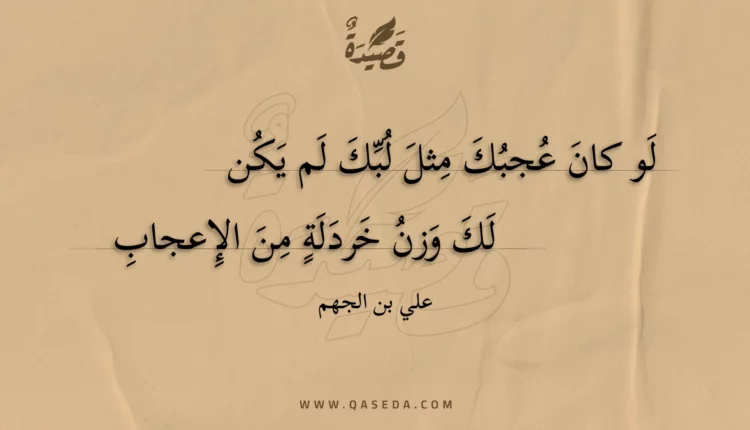 قَصِيدَةٌ
لَو كانَ عُجبُكَ مِثلَ لُبِّكَ لَم يَكُن
لَكَ وَزنُ خَردَلَةٍ مِنَ الإِعجابِ
علي بن الجهم
WWW.QASEDA.COM